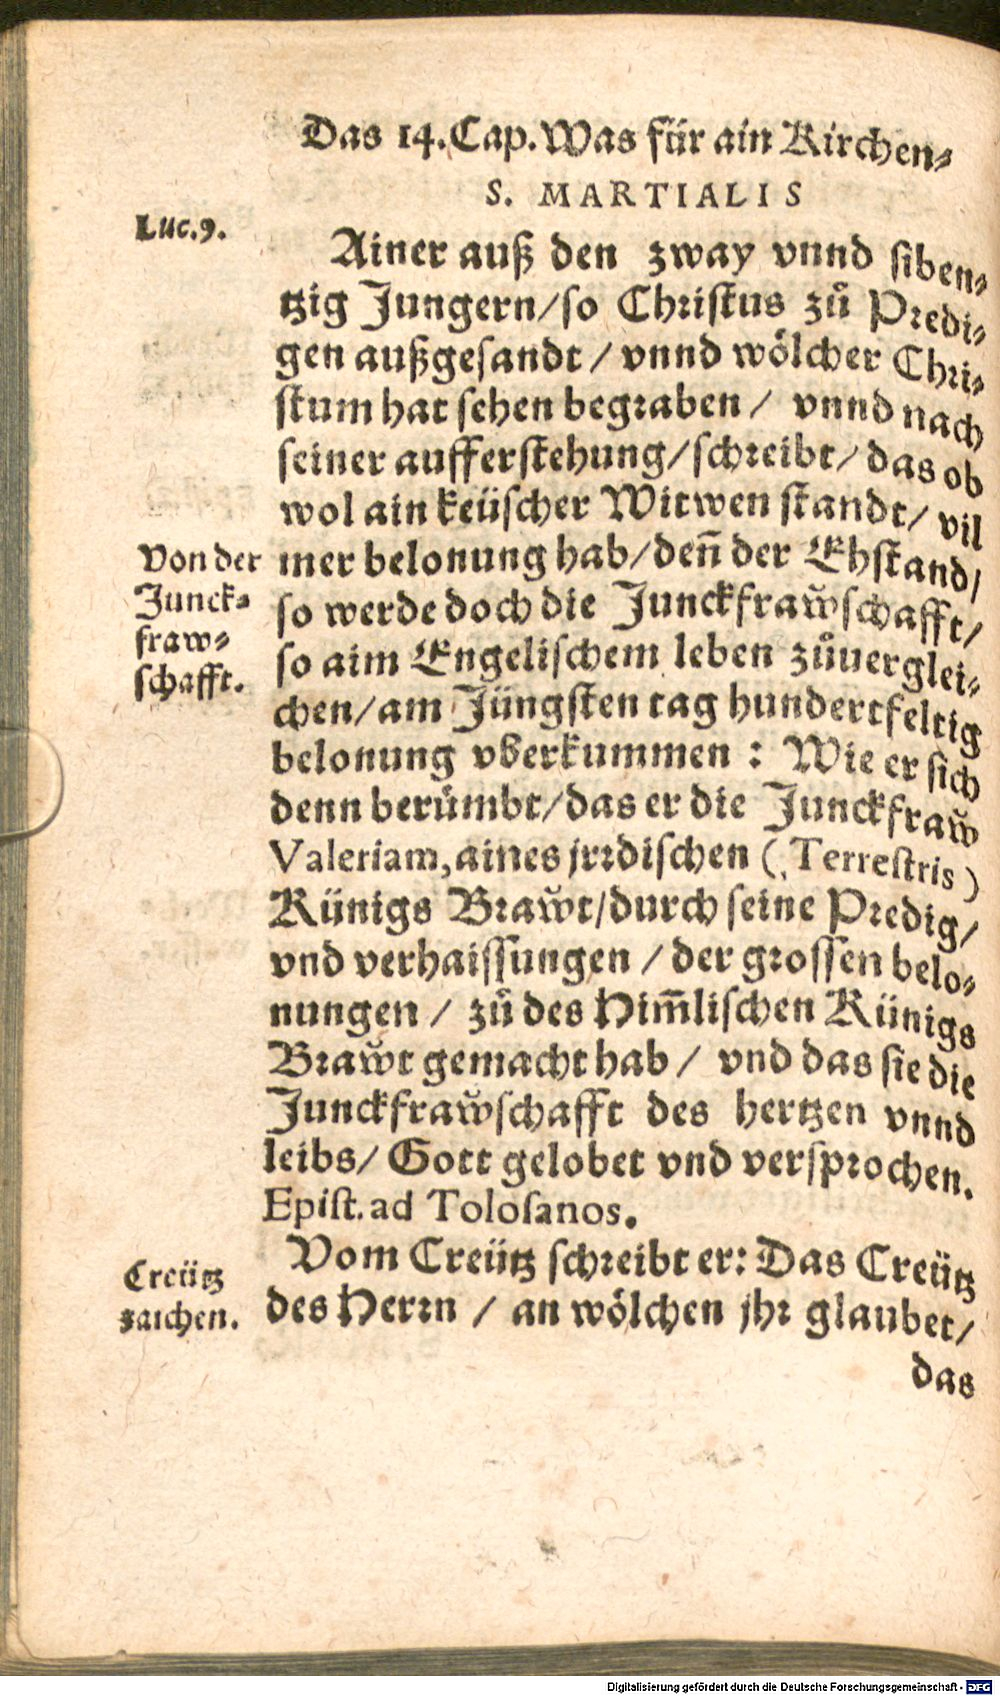 Das 14. Cap. Was für ain Kirchen⸗
S. MARTIALIS
Luc. 9.
Ainer auß den zway vnnd siben⸗
tzig Jungern/so Christus zů Predi⸗
gen außgesandt / vnnd wölcher Chri⸗
stum hat sehen begraben / vnnd nach
seiner aufferstehung/schreibt/das ob
wol ain keüscher Witwen standt/ vil
mer belonung hab/deñ der Ehstand/
Von der
Junck⸗
fraw⸗
schafft.
so werde doch die Junckfraw̌schafft/
so aim Engelischem leben zůuerglei⸗
chen/am Jüngsten tag hundertfeltig
belonung vberkummen : Wie er sich
denn berümbt/das er die Junckfraw̌
Valeriam, aines jrrdischen ( Terrestris )
Künigs Braw̌t/durch seine Predig/
vnd verhaissungen / der grossen belo⸗
nungen / zů des Him̃lischen Künigs
Braw̌t gemacht hab / vnd das sie die
Junckfraw̌schafft des hertzen vnnd
leibs/ Gott gelobet vnd versprochen.
Epist. ad Tolosanos.
Vom Creütz schreibt er: Das Creütz
Creütz
zaichen.
des Herrn / an wölchen jhr glaubet/
das
Digitalisierung gefördert durch die Deutsche Forschungsgemeinschaft - DFG